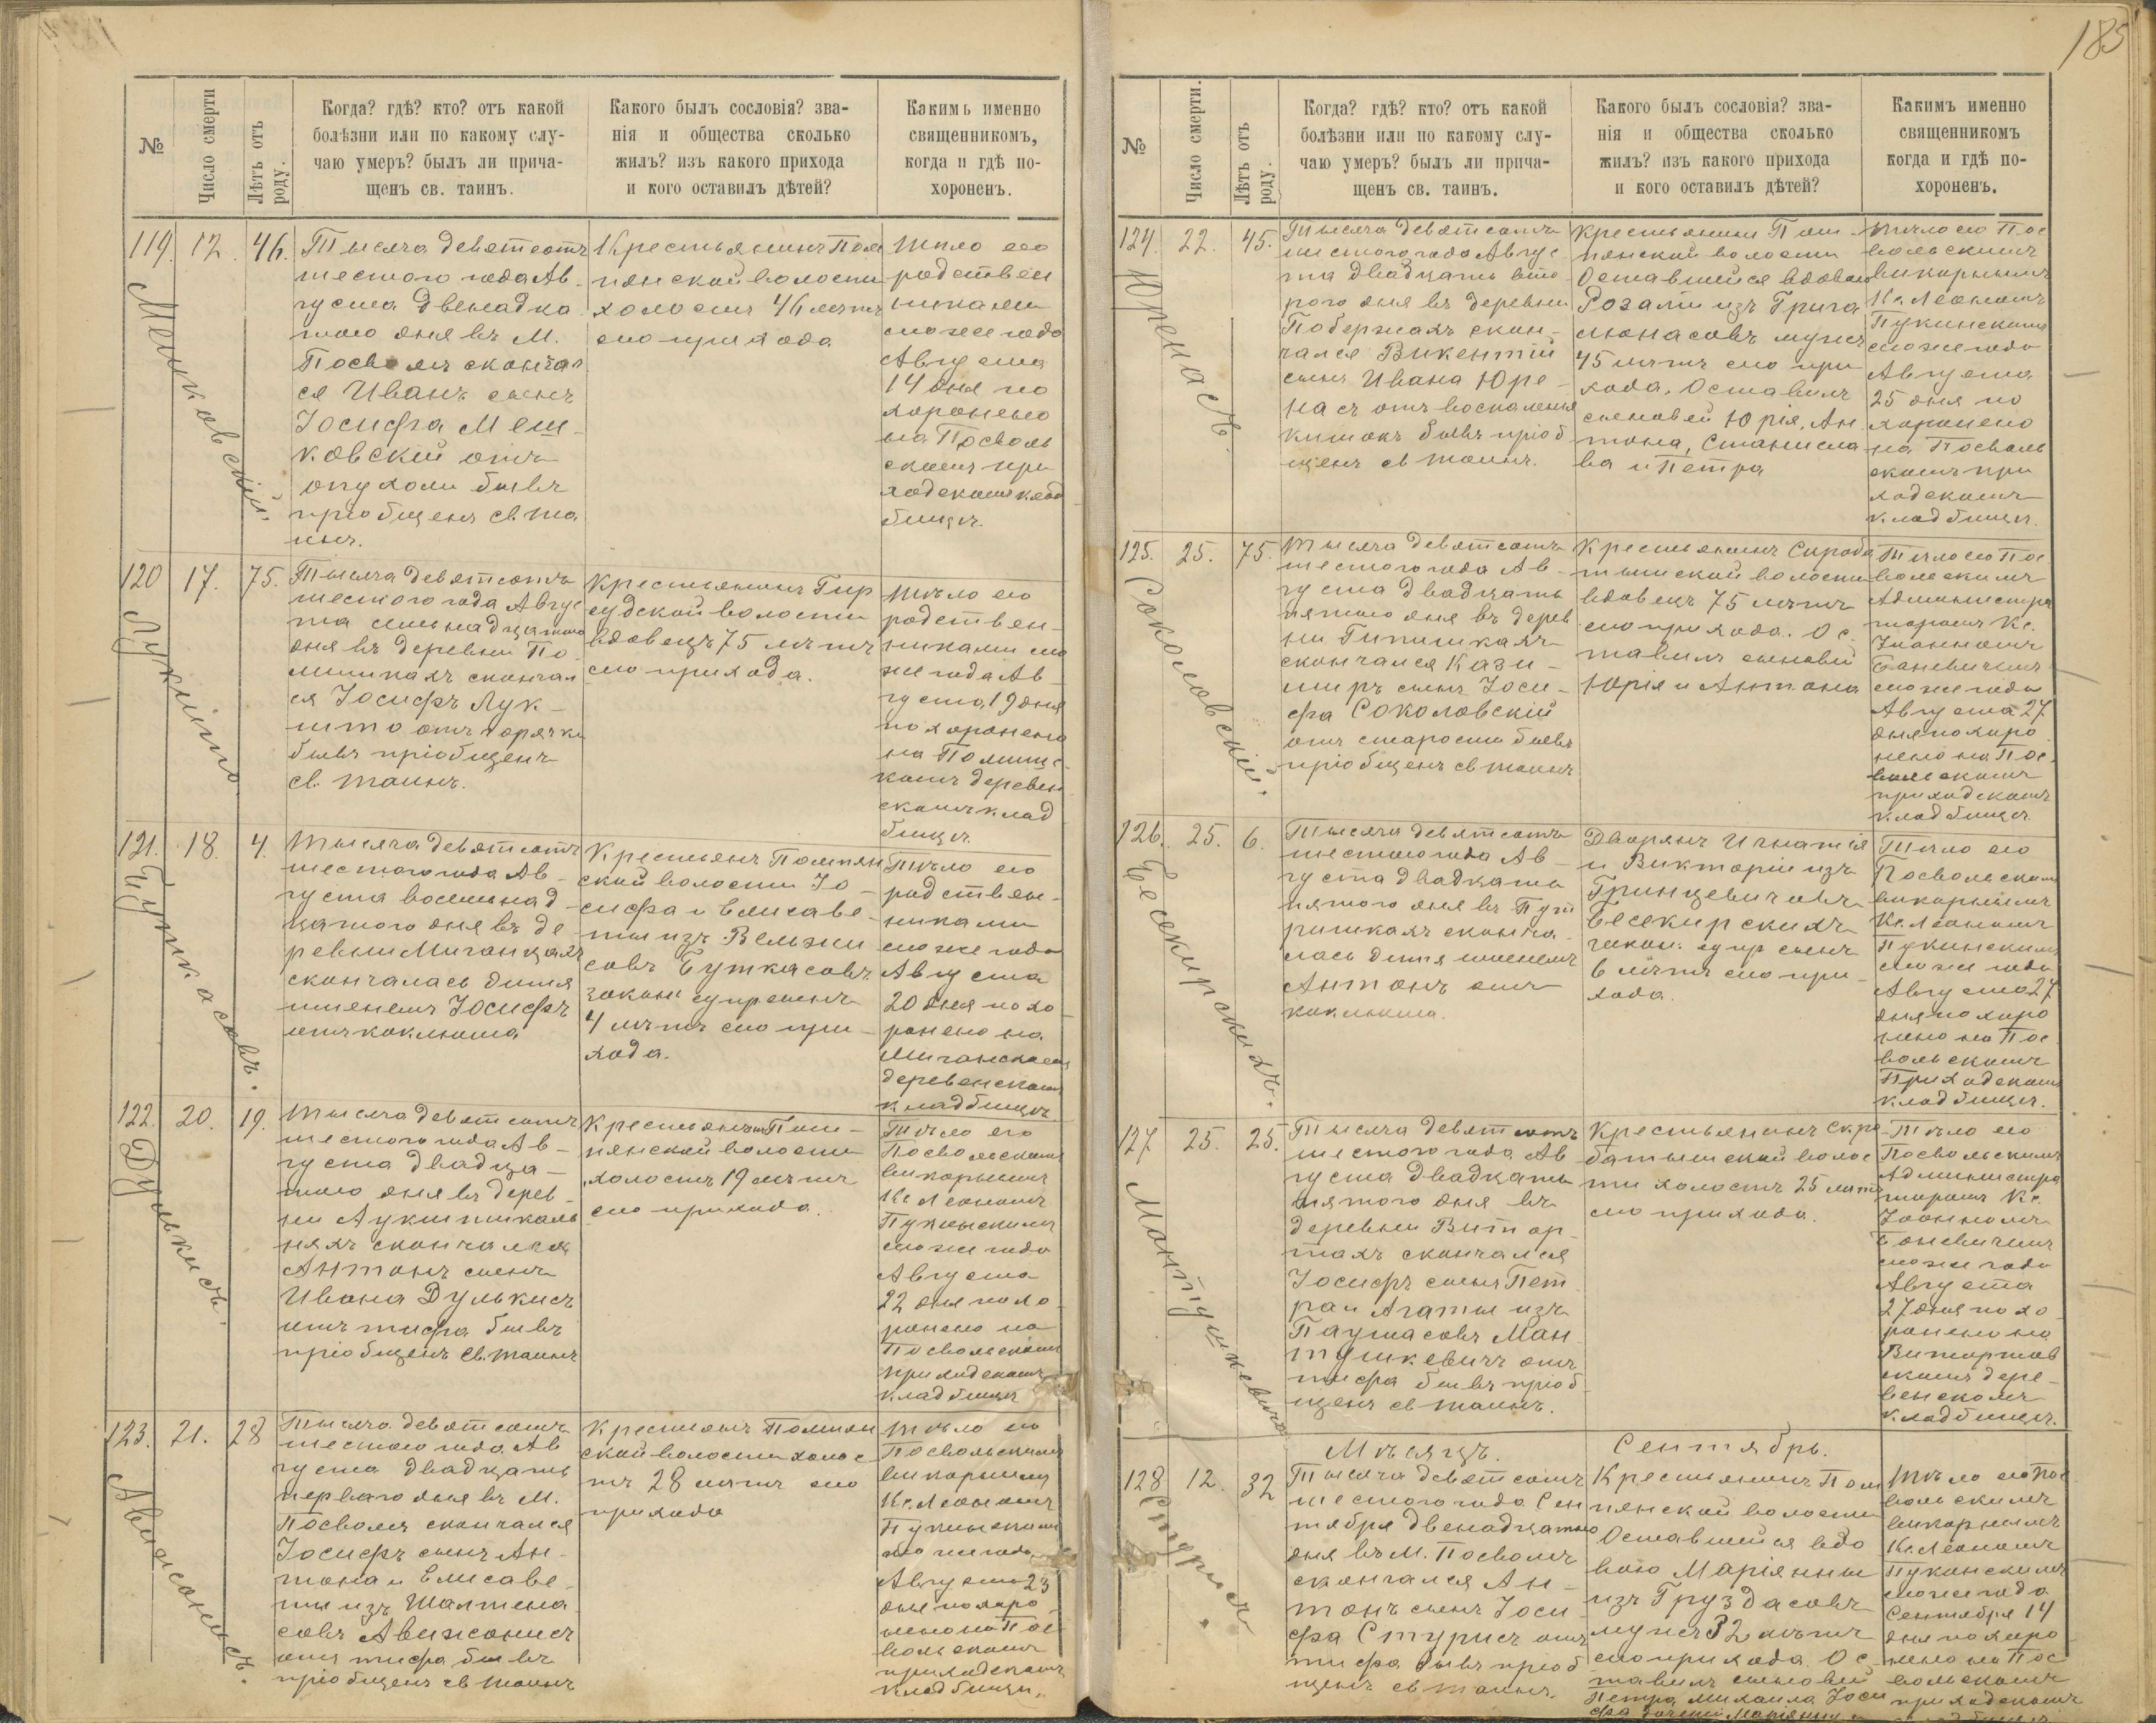 185
№
Число смерти
Лѣтъ отъ
роду.
Когда? гдѣ? кто? отъ какой
болѣзни или по какому слу-
чаю умеръ? былъ ли прича-
щенъ св. таинъ.
Какого былъ сословія? зва-
нія и общества сколько
жилъ? изъ какого прихода
и кого оставилъ дѣтей?
Какимъ именно
священникомъ,
когда и гдѣ по-
хороненъ.
119. 12. 46.
Мешковскій.
Тысяча девятсотъ
шестого года Ав-
густа двенадца
таго дня въ М.
Посволѣ скончал
ся Иванъ сынъ
Іосифа Меш-
ковскій отъ
опухоли бывъ
пріобщенъ св. та
инъ.
Крестьянинъ Пом
пянской волости
холостъ 46 лѣтъ
сего прихода
Тѣло его
родствен
никами
сего же года
Августа
14 дня по
хоронено
на Посволь
скомъ при
ходскомъ клад
бищѣ.
120 17. 75.
Лукшто
Тысяча девятсотъ
шестого года Авгус
та семнадцатаго
дня въ деревни По
скончал
ся Іосифъ Лук-
што отъ горячки
бывъ пріобщенъ
св. таинъ.
Крестьянинъ Гир
судской волости
вдовецъ 75 лѣтъ
сего прихода.
Тѣло его
родствен-
никами се
же года Ав-
густа 19 дня
похоронено
на
комъ деревен
скомъ клад
бищѣ.
121. 18. 4.
Буткасовъ.
Тысяча девятсотъ
шестого года Ав-
густа восемнад-
цатого дня въ де-
ревни
скончалась дитя
именемъ Іосифъ
отъ коклюша
Крестьянъ Помпян
ской волости Іо-
сифа и Елисаве-
ты изъ
совъ Буткасовъ
закон: супр: сынъ
4 лѣтъ сего при-
хода.
Тѣло его
родствен-
никами
сего же года
Августа
20 дня похо
ронено на
деревенскомъ
кладбищѣ
122. 20. 19.
Дулькисъ.
Тысяча девятсотъ
шестого года Ав-
густа двадца-
таго дня въ дерев-
ни
няхъ скончался
Антонъ сынъ
Ивана Дулькисъ
отъ тифа бывъ
пріобщенъ св. таинъ
Крестьянинъ Пом-
пянской волости
холостъ 19 лѣтъ
сего прихода.
Тѣло его
Посвольскимъ
викарнымъ
Кс. Леономъ
Пукинскимъ
сего же года
Августа
22 дня похо
ронено на
Посвольскомъ
приходскомъ
кладбищѣ
123. 21. 28
Авижонисъ.
Тысяча девятсотъ
шестого года Ав
густа двадцать
перваго дня въ М.
Посволѣ скончался
Іосифъ сынъ Ан-
тона и Елисаве-
ты изъ
совъ Авижонисъ
отъ тифа бывъ
пріобщенъ св. таинъ
Крестьянъ Помпян
ской волости холос
тъ 28 лѣтъ сего
прихода
Тѣло его
Посвольскимъ
викарнымъ
Кс. Леономъ
Пукинскимъ
сего же года
Августа 23
дня похоро-
нено на Пос
вольскомъ
приходскомъ
кладбищѣ.
№
Число смерти.
Лѣтъ отъ
роду.
Когда? гдѣ? кто? отъ какой
болѣзни или по какому слу-
чаю умеръ? былъ ли прича-
щенъ св. таинъ.
Какого былъ сословія? зва-
нія и общества сколько
жилъ? изъ какого прихода
и кого оставилъ дѣтей?
Какимъ именно
священникомъ
когда и гдѣ по-
хороненъ.
124. 22. 45.
Юренасъ.
Тысяча девятсотъ
шестого года Авгус
та двадцать вто
рого дня въ деревни
Побержахъ скон-
чался Викентій
сынъ Ивана Юре-
насъ отъ воспаленія
кишекъ бывъ пріоб
щенъ св таинъ.
Крестьянинъ Пом-
пянской волости
Оставшейся вдовы
Розаліи изъ Грига
люнасовъ мужъ
45 лѣтъ сего при
хода. Оставилъ
сыновей Юрія, Ан
тона, Станисла
ва и Петра
Тѣло его Пос
вольскимъ
викарнымъ
Кс. Леономъ
Пукинскимъ
сего же года
Августа
25 дня по
хоронено
на Посволь
скомъ при
ходскомъ
кладбищѣ.
125. 25. 75.
Соколовскій.
Тысяча девятсотъ
шестого года Ав-
густа двадцать
пятого дня въ дерев
ни
скончался Кази-
миръ сынъ Іоси-
фа Соколовскій
отъ старости бывъ
пріобщенъ св таинъ
Крестьянинъ Скроба
тышской волости
вдовецъ 75 лѣтъ
сего прихода. Ос-
тавилъ сыновей
Юрія и Антона
Тѣло его Пос
вольскимъ
Администра
торомъ Кс.
Іоанномъ
Баневичемъ
сего же года
Августа 27
дня похоро
нено на Пос-
вольскомъ
приходскомъ
кладбищѣ.
126. 25. 6.
Бесекирскихъ.
Тысяча девятсотъ
шестого года Ав-
густа двадцать
пятого дня въ Пут
ришкахъ сконча
лась дитя именемъ
Антонъ отъ
коклюша.
Дворянъ Игнатія
и Викторіи изъ
Гринцевичовъ
Бесекирскихъ
закон: супр сынъ
6 лѣтъ сего при-
хода.
Тѣло его
Посвольскимъ
викарнымъ
Кс. Леономъ
Пукинскимъ
сего же года
Августа 27
дня похоро
нено на Пос
вольскомъ
Приходскомъ
кладбищѣ.
127 25. 25.
Мантушкевичъ
Тысяча девятсотъ
шестого года Ав
густа двадцать
пятого дня въ
деревни Витар-
тахъ скончался
Іосифъ сынъ Пет
ра и Агаты изъ
Паужасовъ Ман-
тушкевичъ отъ
тифа бывъ пріоб-
щенъ св таинъ.
Крестьянинъ Скро
батышской волос
ти холостъ 25 лѣтъ
сего прихода.
Тѣло его
Посвольскимъ
Администра
торомъ Кс.
Іоанномъ
Баневичемъ
сего же года
Августа
27 дня похо
ронено на
Витартов
скомъ дере-
венскомъ
кладбищѣ.
Мѣсяцъ. Сентябрь.
128 12. 32
Стурисъ.
Тысяча девятсотъ
шестого года Сен
тября двенадцатаго
дня въ М. Посволѣ
скончался Ан-
тонъ сынъ Іоси-
фа Стурисъ отъ
тифа бывъ пріоб
щенъ св таинъ.
Крестьянинъ Пом
пянской волости
Оставшейся вдо
вою Маріянны
изъ Груздасовъ
мужъ 32 лѣтъ
сего прихода. Ос-
тавилъ сыновей
Петра Михаила Іоси
фа дочери Маріянны
Тѣло его Пос
вольскимъ
викарнымъ
Кс. Леономъ
Пукинскимъ
сего же года
Сентября 14
дня похоро
нено на Пос
вольскомъ
приходскомъ